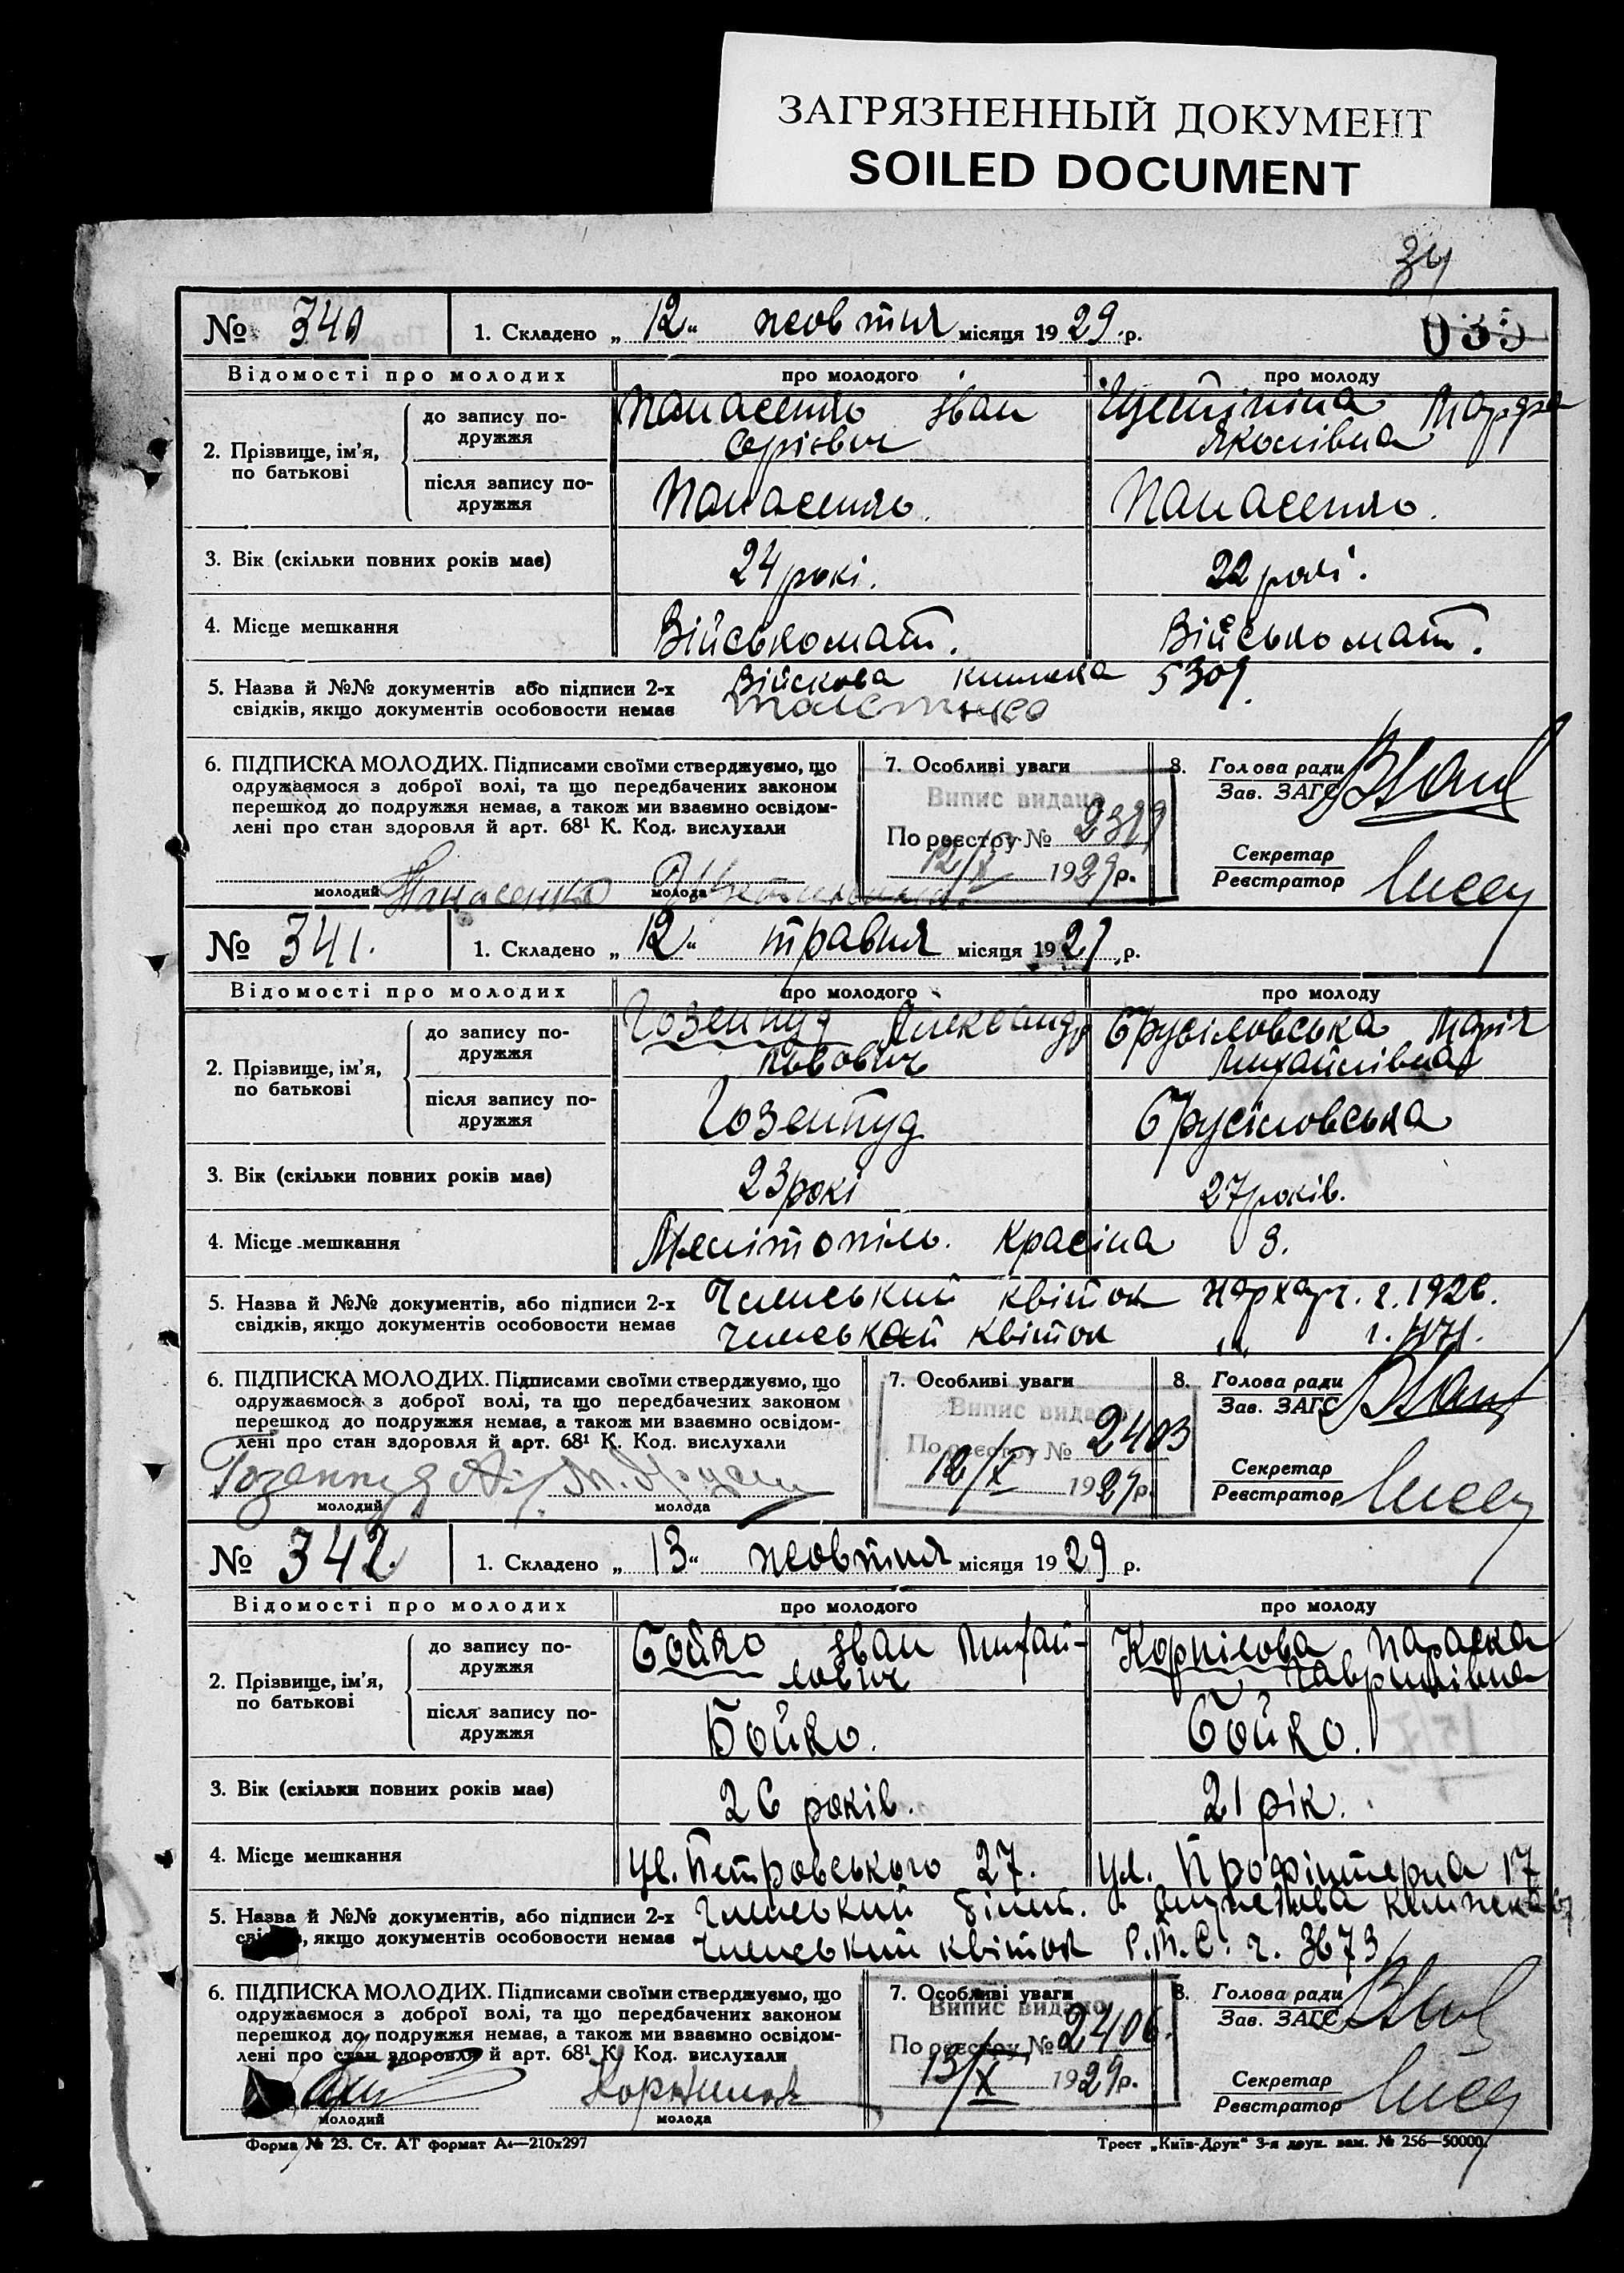 ЗАГРЯЗНЕННЫЙ ДОКУМЕНТ
SOILED DOCUMENT
34
№ 340 1. Складено „12“ жовтня місяця 1929 р.
Відомості про молодих про молодого про молоду
2. Прізвище, ім'я, по батькові
до запису по-
дружжя
Панасенко Іван
Якохівна
після запису по-
дружжя
Панасенко. Панасенко.
3. Вік (скільки повних років має) 24 рокі. 22 рокі.
4. Місце мешкання Військомат. Військомат.
5. Назва й №№ документів або підписи 2-х
свідків, якщо документів особовости немає
Війскова книжка 5309.
6. ПІДПИСКА МОЛОДИХ. Підписами своїми стверджуємо, що
одружаємося з доброї волі, та що передбачених законом
перешкод до подружжя немає, а також ми взаємно освідом-
лені про стан здоровля й арт. 68¹ К. Код. вислухали
Панасенко
молодий молода
7. Особливі уваги
Випис видано
По реєстру №
12/X 1929 р.
8. Голова ради
Зав. ЗАГС
Секретар
Реєстратор
№ 341. 1. Складено „12“ травня місяця 1929 р.
Відомості про молодих про молодого про молоду
2. Прізвище, ім'я, по батькові
до запису по-
дружжя
Гозенпуд Александр Брусіловська Марія
Львович Михайлівна
після запису по-
дружжя
Гозенпуд Брусіловська
3. Вік (скільки повних років має) 23 рокі 27 років.
4. Місце мешкання Мелітопіль. Красіна 8.
5. Назва й №№ документів, або підписи 2-х
свідків, якщо документів особовости немає
Членський квіток Нархарч. ч. 1926.
Членський квіток
6. ПІДПИСКА МОЛОДИХ. Підписами своїми стверджуємо, що
одружаємося з доброї волі, та що передбачених законом
перешкод до подружжя немає, а також ми взаємно освідом-
лені про стан здоровля й арт. 68¹ К. Код. вислухали
Гозенпуд
молодий молода
7. Особливі уваги
Випис видано
По реєстру № 2403
12/X 1929 р.
8. Голова ради
Зав. ЗАГС
Секретар
Реєстратор
№ 342. 1. Складено „13“ жовтня місяця 1929 р.
Відомості про молодих про молодого про молоду
2. Прізвище, ім'я, по батькові
до запису по-
дружжя
Бойко Іван Михай- Корнілова Параска
лович Гаврилівна
після запису по-
дружжя
Бойко. Бойко.
3. Вік (скільки повних років має) 26 років. 21 рік.
4. Місце мешкання ул. Петровського 27. ул. Профінтерна 17
5. Назва й №№ документів, або підписи 2-х
свідків, якщо документів особовости немає
Членський білет. книжка
Членський квіток Р.М.С. ч. 3673
6. ПІДПИСКА МОЛОДИХ. Підписами своїми стверджуємо, що
одружаємося з доброї волі, та що передбачених законом
перешкод до подружжя немає, а також ми взаємно освідом-
лені про стан здоровля й арт. 68¹ К. Код. вислухали
Корнилов
молодий молода
7. Особливі уваги
Випис видано
По реєстру № 2406.
13/X 1929 р.
8. Голова ради
Зав. ЗАГС
Секретар
Реєстратор
Форма № 23. Ст. АТ формат А₄—210х297
Трест „Київ-Друк“ 3-я друк. зам. № 256—50000.